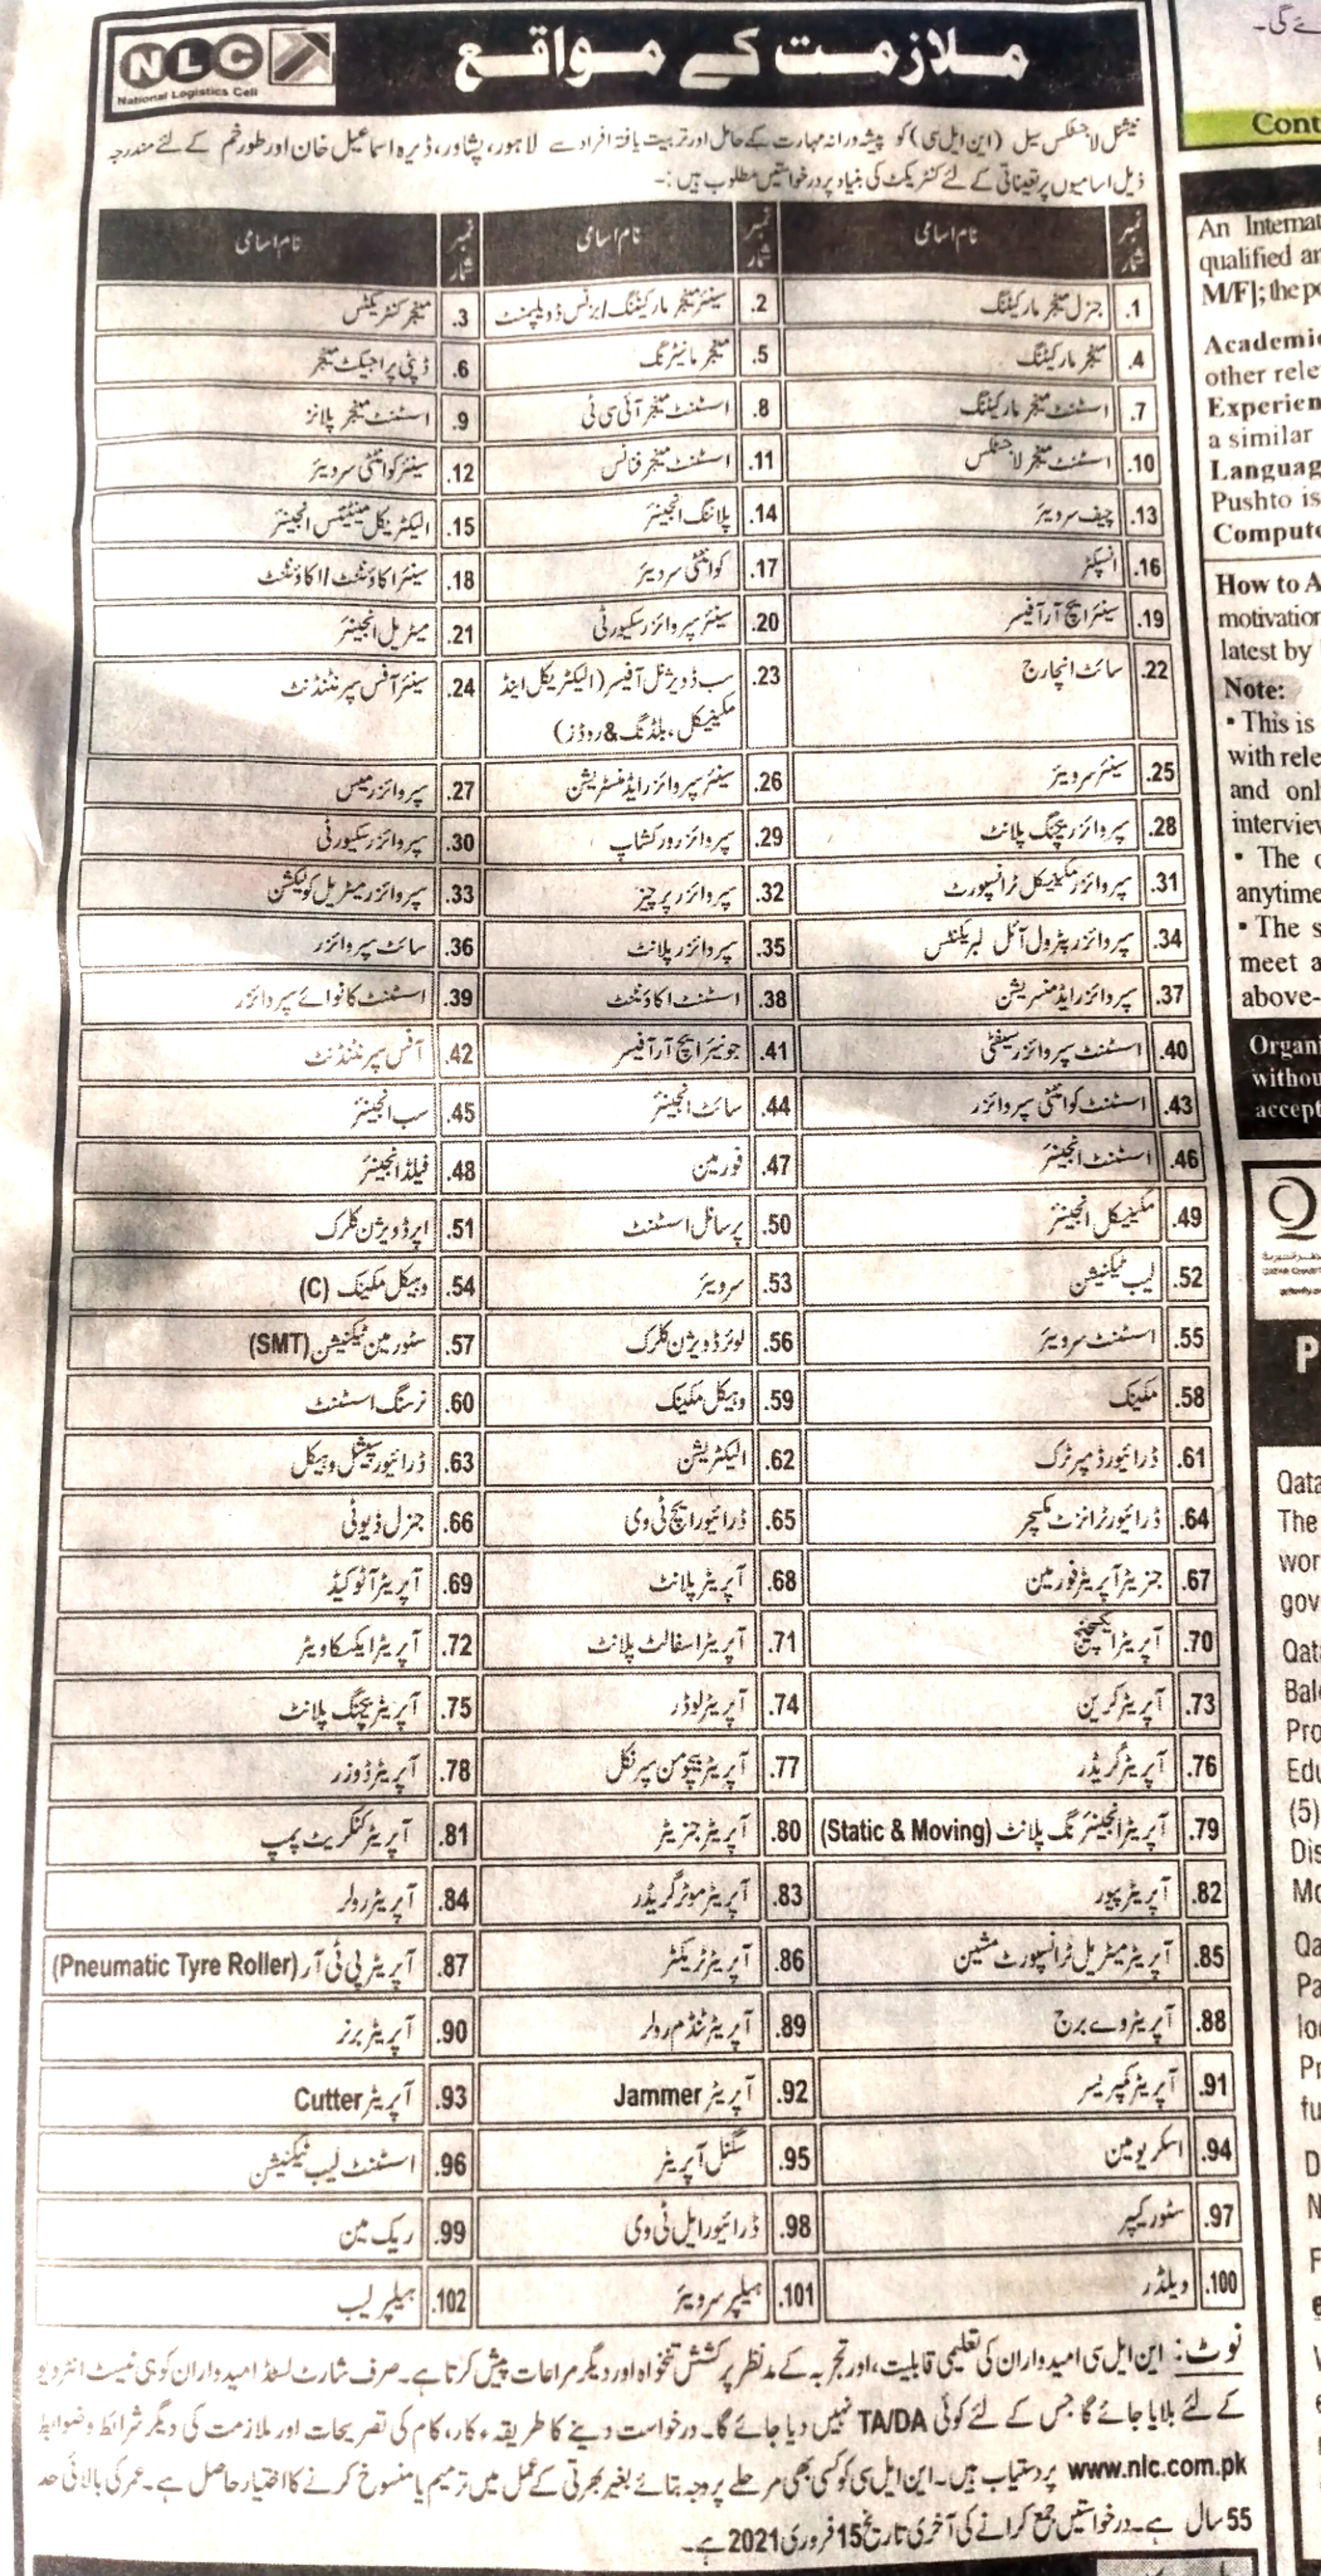 NLC
National Logistics Cell
ملازمت کے مواقع
نیشنل لاجسٹکس سیل (این ایل سی) کو پیشہ ورانہ مہارت کے حامل اور تربیت یافتہ افراد سے لاہور، پشاور، ڈیرہ اسماعیل خان اور طورخم کے لئے مندرجہ
ذیل اسامیوں پر تعیناتی کے لئے کنٹریکٹ کی بنیاد پر درخواستیں مطلوب ہیں :۔
نمبر شمار نام اسامی نمبر شمار نام اسامی نمبر شمار نام اسامی
1. جنرل منیجر مارکیٹنگ 2. سینئر منیجر مارکیٹنگ/بزنس ڈویلپمنٹ 3. منیجر کنٹریکٹس
4. منیجر مارکیٹنگ 5. منیجر مانیٹرنگ 6. ڈپٹی پراجیکٹ منیجر
7. اسسٹنٹ منیجر مارکیٹنگ 8. اسسٹنٹ منیجر آئی سی ٹی 9. اسسٹنٹ منیجر پلانز
10. اسسٹنٹ منیجر لاجسٹکس 11. اسسٹنٹ منیجر فنانس 12. سینئر کوانٹٹی سرویئر
13. چیف سرویئر 14. پلاننگ انجینئر 15. الیکٹریکل مینٹیننس انجینئر
16. انسپکٹر 17. کوانٹٹی سرویئر 18. سینئر اکاؤنٹنٹ/اکاؤنٹنٹ
19. سینئر ایچ آر آفیسر 20. سینئر سپروائزر سکیورٹی 21. میٹریل انجینئر
22. سائٹ انچارج 23. سب ڈویژنل آفیسر (الیکٹریکل اینڈ مکینیکل، بلڈنگ & روڈز) 24. سینئر آفس سپرنٹنڈنٹ
25. سینئر سرویئر 26. سینئر سپروائزر ایڈمنسٹریشن 27. سپروائزر میس
28. سپروائزر بیچنگ پلانٹ 29. سپروائزر ورکشاپ 30. سپروائزر سکیورٹی
31. سپروائزر مکینیکل ٹرانسپورٹ 32. سپروائزر پرچیز 33. سپروائزر میٹریل کولیکشن
34. سپروائزر پٹرول آئل لبریکنٹس 35. سپروائزر پلانٹ 36. سائٹ سپروائزر
37. سپروائزر ایڈمنسٹریشن 38. اسسٹنٹ اکاؤنٹنٹ 39. اسسٹنٹ کانوائے سپروائزر
40. اسسٹنٹ سپروائزر سیفٹی 41. جونیئر ایچ آر آفیسر 42. آفس سپرنٹنڈنٹ
43. اسسٹنٹ کوانٹٹی سپروائزر 44. سائٹ انجینئر 45. سب انجینئر
46. اسسٹنٹ انجینئر 47. فورمین 48. فیلڈ انجینئر
49. مکینیکل انجینئر 50. پرسانل اسسٹنٹ 51. اپر ڈویژن کلرک
52. لیب ٹیکنیشن 53. سرویئر 54. وہیکل مکینک (C)
55. اسسٹنٹ سرویئر 56. لوئر ڈویژن کلرک 57. سٹورمین ٹیکنیشن (SMT)
58. مکینک 59. وہیکل مکینک 60. نرسنگ اسسٹنٹ
61. ڈرائیور ڈمپر ٹرک 62. الیکٹریشن 63. ڈرائیور سپیشل وہیکل
64. ڈرائیور ٹرانزٹ مکسچر 65. ڈرائیور ایچ ٹی وی 66. جنرل ڈیوٹی
67. جنریٹر آپریٹر فورمین 68. آپریٹر پلانٹ 69. آپریٹر آٹو کیڈ
70. آپریٹر ایکسچینج 71. آپریٹر اسفالٹ پلانٹ 72. آپریٹر ایکسکاویٹر
73. آپریٹر کرین 74. آپریٹر لوڈر 75. آپریٹر بیچنگ پلانٹ
76. آپریٹر گریڈر 77. آپریٹر بیچومن سپرنکل 78. آپریٹر ڈوزر
79. آپریٹر انجینئرنگ پلانٹ (Static & Moving) 80. آپریٹر جنریٹر 81. آپریٹر کنکریٹ پمپ
82. آپریٹر پیور 83. آپریٹر موٹر گریڈر 84. آپریٹر رولر
85. آپریٹر میٹریل ٹرانسپورٹ مشین 86. آپریٹر ٹریکٹر 87. آپریٹر پی ٹی آر (Pneumatic Tyre Roller)
88. آپریٹر وے برج 89. آپریٹر ٹنڈم رولر 90. آپریٹر برنر
91. آپریٹر کمپریسر 92. آپریٹر Jammer 93. آپریٹر Cutter
94. اسکریو مین 95. سگنل آپریٹر 96. اسسٹنٹ لیب ٹیکنیشن
97. سٹور کیپر 98. ڈرائیور ایل ٹی وی 99. ریک مین
100. ویلڈر 101. ہیلپر سرویئر 102. ہیلپر لیب
نوٹ: این ایل سی امیدواران کی تعلیمی قابلیت، اور تجربہ کے مدنظر پرکشش تنخواہ اور دیگر مراعات پیش کرتا ہے۔ صرف شارٹ لسٹڈ امیدواران کو ہی ٹیسٹ انٹرویو
کے لئے بلایا جائے گا جس کے لئے کوئی TA/DA نہیں دیا جائے گا۔ درخواست دینے کا طریقہ ء کار، کام کی تصریحات اور ملازمت کی دیگر شرائط و ضوابط
www.nlc.com.pk پر دستیاب ہیں۔ این ایل سی کو کسی بھی مرحلے پر وجہ بتائے بغیر بھرتی کے عمل میں ترمیم یا منسوخ کرنے کا اختیار حاصل ہے۔ عمر کی بالائی حد
55 سال ہے۔ درخواستیں جمع کرانے کی آخری تاریخ 15 فروری 2021 ہے۔
Cont
An Internat
qualified an
M/F]; the po
Academic
other rele
Experien
a similar
Languag
Pushto is
Compute
How to A
motivation
latest by
Note:
▪ This is
with rele
and onl
interview
▪ The
anytime
▪ The s
meet a
above-
Organi
withou
accept
P
Qata
The
wor
gov
Qat
Bal
Pro
Edu
(5)
Dis
Mo
Qa
Pa
lo
Pr
fu
D
N
F